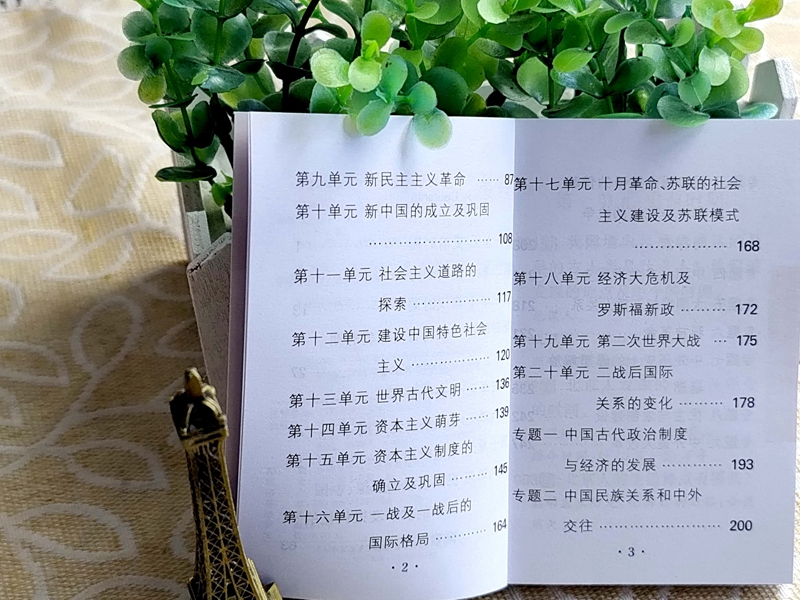 第九单元 新民主主义革命 …… 87
第十单元 新中国的成立及巩固
………………………… 108
第十一单元 社会主义道路的
探索 ……………… 117
第十二单元 建设中国特色社会
主义 ……………… 120
第十三单元 世界古代文明 …… 136
第十四单元 资本主义萌芽 …… 139
第十五单元 资本主义制度的
确立及巩固 ……… 145
第十六单元 一战及一战后的
国际格局 ………… 164
· 2 ·
第十七单元 十月革命、苏联的社会
主义建设及苏联模式
…………………… 168
第十八单元 经济大危机及
罗斯福新政 ……… 172
第十九单元 第二次世界大战 … 175
第二十单元 二战后国际
关系的变化 ……… 178
专题一 中国古代政治制度
与经济的发展 ………… 193
专题二 中国民族关系和中外
交往 …………………… 200
· 3 ·